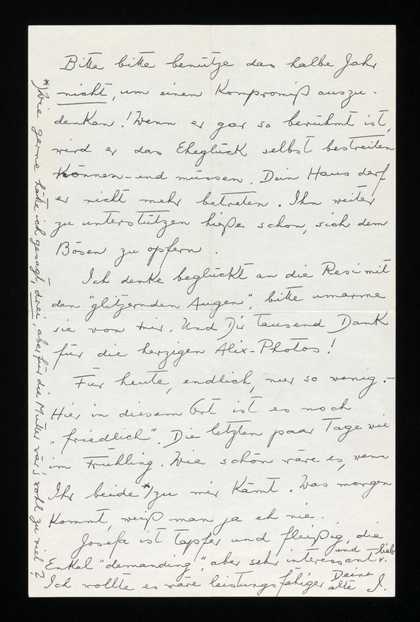 Bitte bitte benütze das halbe Jahr
nicht, um einen Kompromiß auszu-
denken! Wenn er gar so berühmt ist,
wird er das Eheglück selbst bestreiten
können - und müssen. Dein Haus darf
er nicht mehr betreten. Ihn weiter
zu unterstützen hieße schon, sich dem
Bösen zu opfern.
Ich denke beglückt an die Resi mit
den "glitzernden Augen", bitte umarme
sie von mir. Und Dir tausend Dank
für die herzigen Alix-Photos!
Für heute, endlich, nur so wenig. -
Hier in diesem Ort ist es noch
"friedlich". Die letzten paar Tage wie
im Frühling. Wie schön wäre es, wenn
Ihr beide *) zu mir kämt. Was morgen
kommt, weiß man ja eh nie.
Josefa ist tapfer und fleißig, die
Enkel "demanding", aber sehr interessant und lieb.
Ich wollte es wäre leistungsfähiger Deine alte I.
*) Wie gerne hätte ich gesagt, drei, aber für die Mutter wär's wohl zu viel?